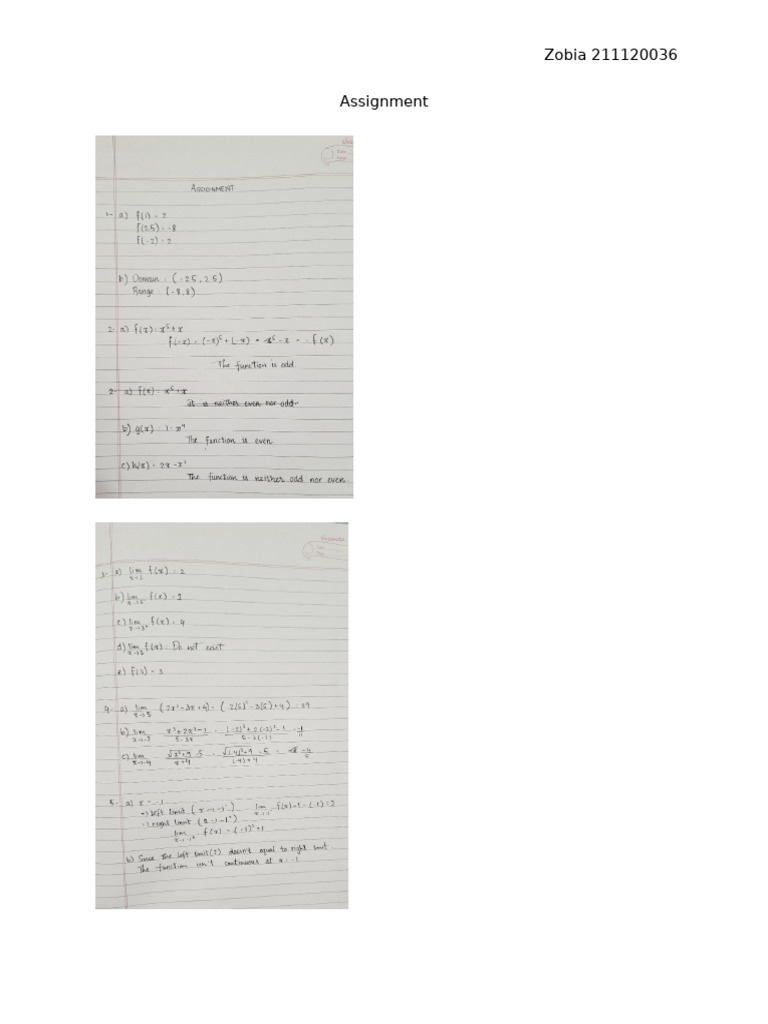 Zobia 211120036
Assignment
ASSIGNMENT
1- a) f(1) = 2
f(2.5) = -8
f(-2) = 2
b) Domain : (-2.5, 2.5)
Range : (-8, 8)
2- a) f(x) = x⁵+x
f(-x) = (-x)⁵ + (-x) = -x⁵ - x = -f(x)
The function is odd
2- a) f(x) = x⁵+x
It is neither even nor odd
b) g(x) = 1-x⁴
The function is even
c) h(x) = 2x-x²
The function is neither odd nor even.
3- a) lim f(x) = 2
b) lim f(x) = 1
c) lim f(x) = 4
d) lim f(x) = Do not exist
e) f(3) = 3
4- a) lim x→5 (2x²-3x+4) = (2(5)²-3(5)+4) = 39
b) lim x→-2 x³+2x²-1 / 5-3x = (-2)³+2(-2)²-1 / 5-3(-2) = -1/11
c) lim x→-4 √x²+9 -5 / x+4 = √(-4)²+9 -5 / (-4)+4 = -4/5
5- a) x = -1
→ left limit (x→-1⁻) lim f(x) = 1-(-1) = 2
→ right limit (x→-1⁺)
lim f(x) = (-1)² = 1
b) Since the left limit(2) doesn't equal to right limit
The function isn't continuous at a = -1